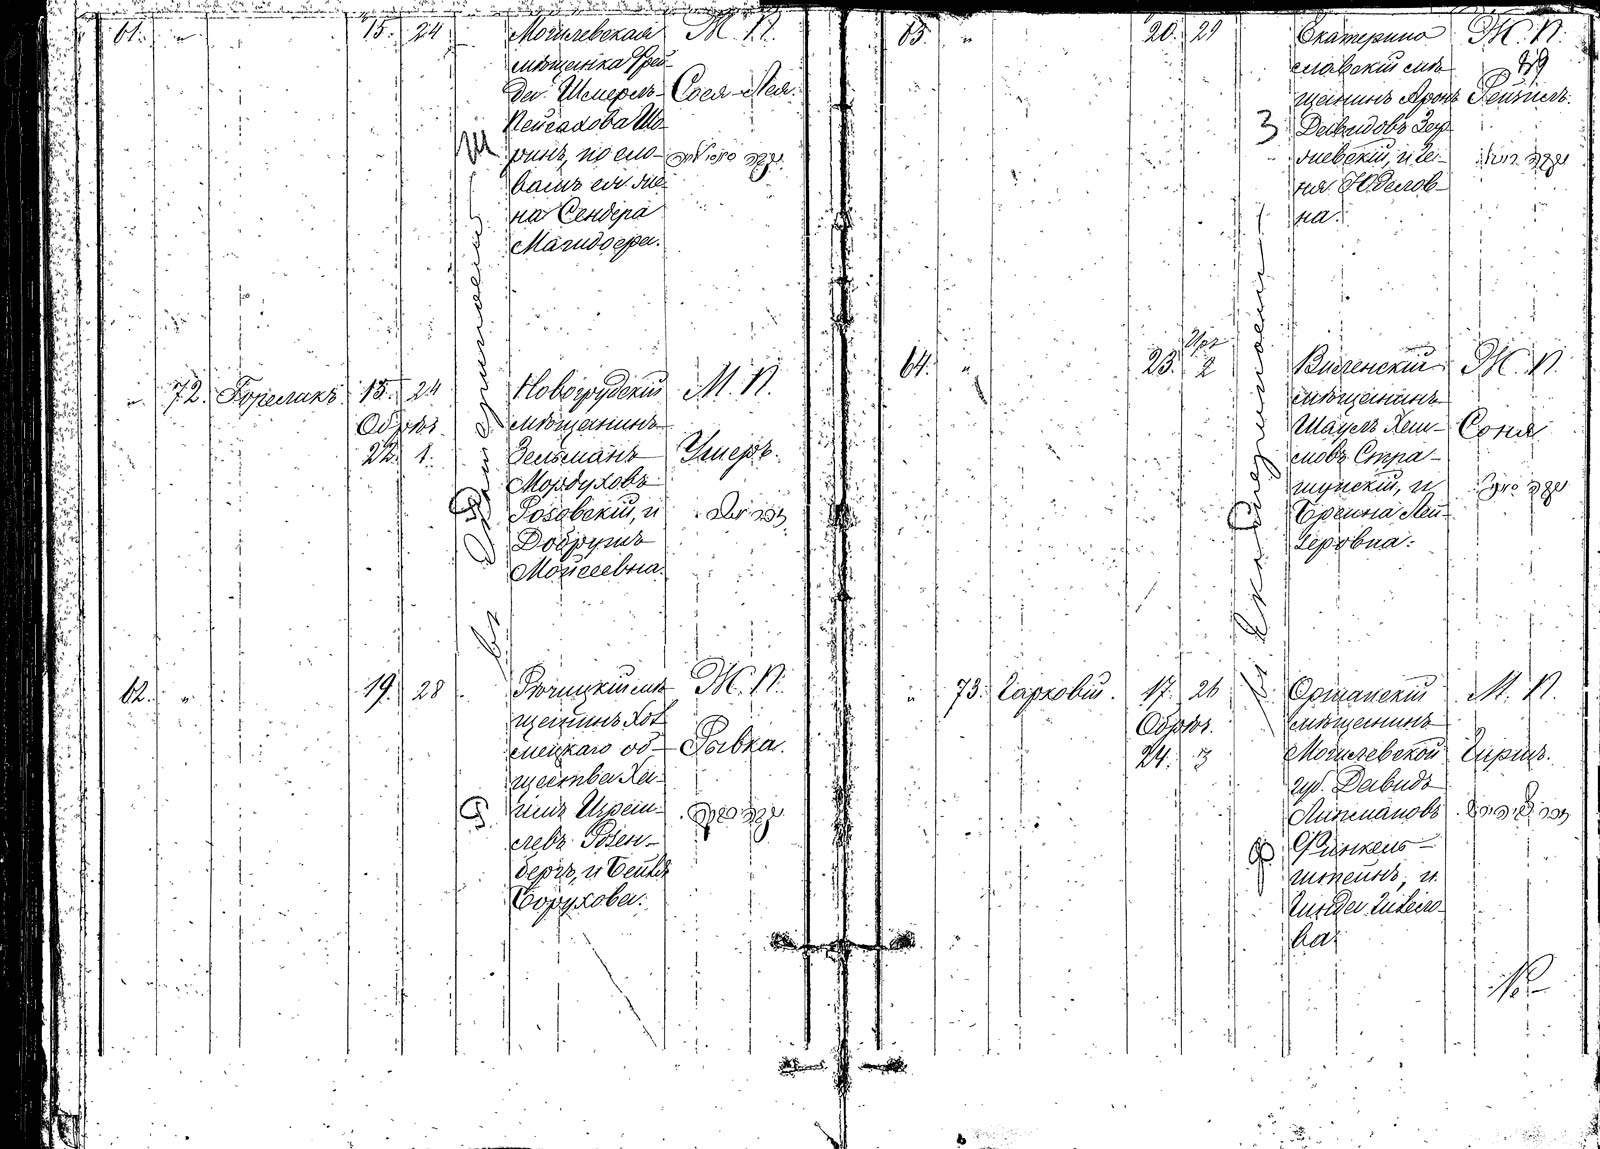 61. " 15. 24
Могилевская
мѣщанка Фрей-
да Шмерль-
Пейсахова Шо-
ринъ, по сло-
вамъ ея же-
на Сендера
Магидсера.
Ж. П.
Соея-Лея
Ш
въ Екатеринославѣ
" 72. Гореликъ 15. 24
Обрѣз.
22. 1.
Новогрудскій
мѣщанинъ
Зельманъ
Мордуховъ
Розовскій, и
Добрушъ
Мойсеевна.
М. П.
Умеръ.
Р
62. " 19. 28
Рѣчицкій мѣ-
щанинъ Хол
мецкаго об-
щества Ха-
имъ Израи-
левъ Розен-
бергъ, и Бейля
Борухова.
Ж. П.
Рывка.
Р
63. " 20. 29
Екатерино
славскій мѣ-
щанинъ Аронъ
Давидовъ
на.
Ж. П.
Рейзиль.
З
въ Екатеринославѣ
64. " 23. Апр. 2
Виленскій
мѣщанинъ
Шаулъ Хаи-
мовъ Стра-
шунскій, и
Браина Лей-
зеровна.
Ж. П.
Соня
" 73. Гарковій. 17. 26
Обрѣз.
24. 3
Оршанскій
мѣщанинъ
Могилевской
губ. Давидъ
Липмановъ
Финкель-
штейнъ, и
Гинда
ва.
М. П.
Гиршъ.
Ф
№